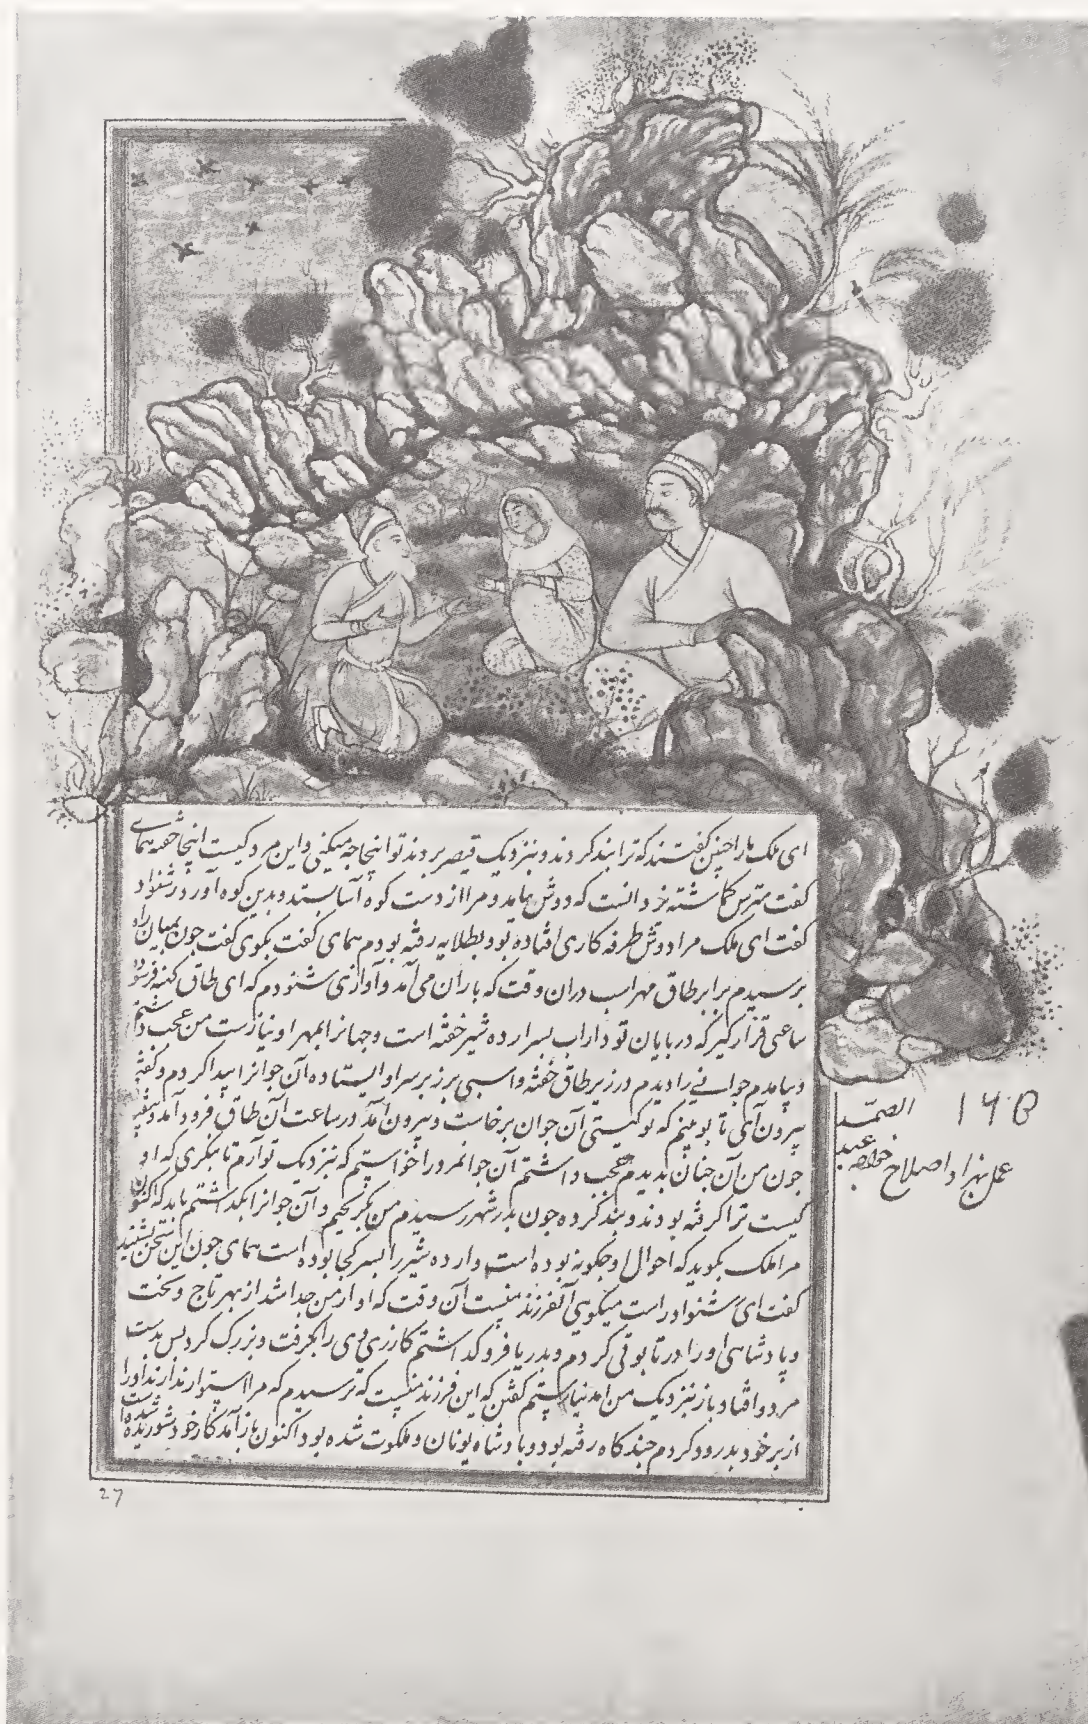 ای ملک ما را چنین گفتند که ترا بند کردند و بنزدیک قیصر بردند تو اینجا چه میکنی و این مرد کیست اینجا خفته همای
گفت مترس که او دوش بیامد و مرا از دست بستد و بدین کوه آورد رشنواد
گفت ای ملک مرا دوش طرفه کاری افتاده بود بطلایه رفته بودم همای گفت بگوی گفت جون بمیان راه
برسیدم برابر طاق مهراسب دران وقت که باران می آمد و آوازی شنودم که ای طاق کهنه فرسوده
ساعتی قرار گیر که در پایان تو داراب بسر ارده شیر خفته است و جهانرا بمهر او نیازست من عجب داشتم
و بیامدم جوانی را دیدم در زیر طاق خفته و اسبی بر زبر سر او ایستاده آن جوانرا بیدار کردم و گفتم
بیرون آی تا بوبینم که تو کیستی آن جوان برخاست و بیرون آمد در ساعت آن طاق فرود آمد
جون من آن جنان بدیدم عجب داشتم آن جوانمرد را خواستم که بنزدیک تو آرم تا بنکری که او
کیست ترا کرفته بودند و بند کرده جون بدر شهر رسیدم من بگریختم و آن جوانرا بگذاشتم باید که اکنون
مرا ملک بگوید که احوال او جکونه بوده است و ارده شیر را بسر کجا بوده است همای جون این سخن بشنید
گفت ای رشنواد راست میگویی آن فرزند منست آن وقت که او از من جدا شد از بهر تاج و تخت
و پادشاهی او را در تابوتی کردم و بدریا فرو گذاشتم کازری وی را بگرفت و بزرک کرد بس بدست
مردو افتاد و باز بنزدیک من آمد نیارستم گفتن که این فرزند منست که ترسیدم که مرا استوار ندارند او را
از بر خود بدرود کردم جندکاه رفته بود و بادشاه یونان و ملکوت شده بود اکنون باز آمد کار خود شوریده
16B
عمل بهزاد اصلاح خواجه عبد الصمد
27